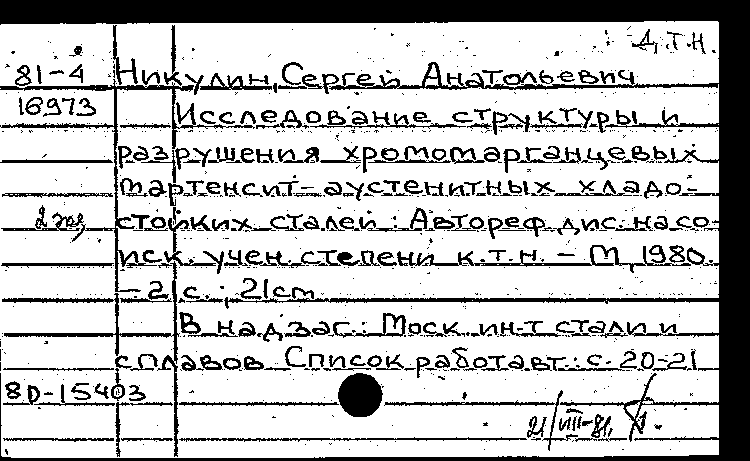 Д.Т.Н.
81-4 Никулин, Сергей Анатольевич
16973 Исследование структуры и
разрушения хромомарганцевых
мартенсит-аустенитных хладо-
2 экз стойких сталей: Автореф. дис. на со-
иск. учен. степени к.т.н. - М, 1980.
- 21с.; 21см
В надзаг.: Моск. ин-т стали и
сплавов Список работ авт.: с. 20-21
8D-15403
21/VIII-81.